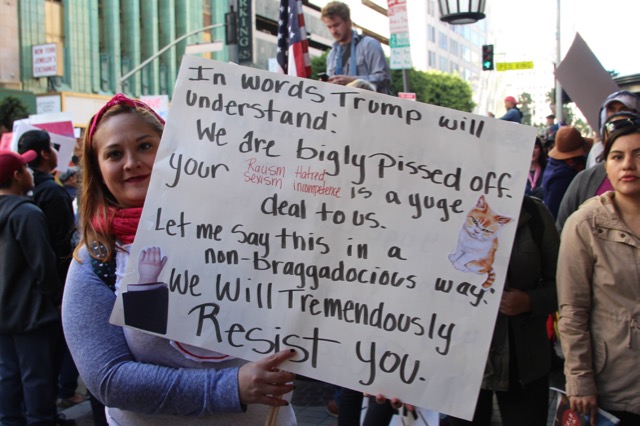 NEW YORK
JEWELER'S
EXCHANGE
PARKING
In words Trump will
understand:
We are bigly pissed off.
your Racism Hatred
Sexism Incompetence is a yuge
deal to us.
Let me say this in a
non-Braggadocious way:
We Will Tremendously
Resist you.